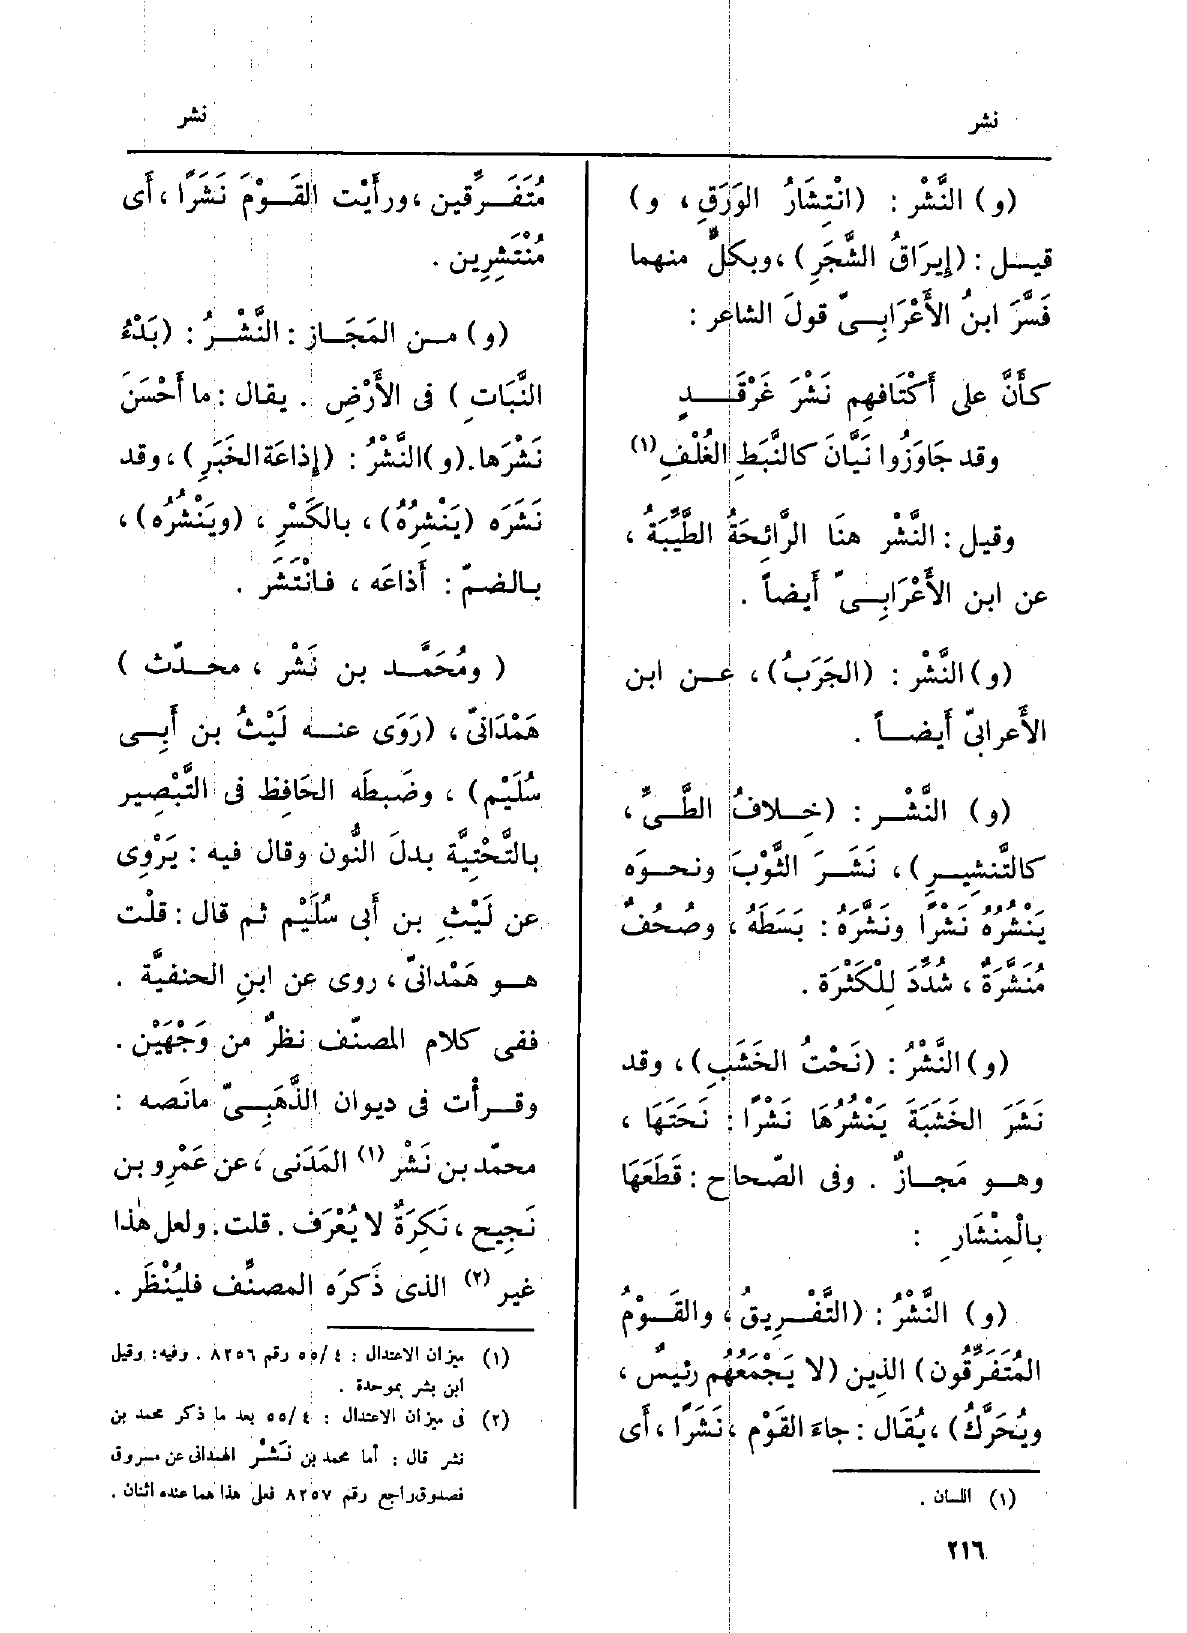 نشر
نشر
(و) النَّشْر : (انْتِشَارُ الوَرَقِ ، و)
قيـل : (إِيرَاقُ الشَّجَرِ) ، وبكلٍّ منهما
فَسَّرَ ابنُ الأَعْرَابِـىّ قولَ الشاعر :
كأَنَّ على أَكتافِهم نَشْرَ غَرْقَـدٍ
وقد جَاوَزُوا نَيَّانَ كالنَّبَطِ الغُلْفِ (١)
وقيل : النَّشْر هنَا الرَّائحَةُ الطَّيِّبَةُ ،
عن ابن الأَعْرَابِـىّ أَيضاً .
(و) النَّشْر : (الجَرَبُ) ، عـن ابن
الأَعرابىّ أَيضـاً .
(و) النَّشْـر : (خِـلافُ الطَّـىِّ ،
كالتَّنشِيـرِ) ، نَشَـرَ الثَّوْبَ ونحـوَه
يَنْشُرُهُ نَشْرًا ونَشَّرَهُ : بَسَطَهُ ، وصُحُفٌ
مُنَشَّرَةٌ ، شُدِّدَ لِلْكَثْرَة .
(و) النَّشْرُ : (نَحْتُ الخَشَبِ) ، وقد
نَشَرَ الخَشَبَةَ يَنْشُرُهَا نَشْرًا : نَحَتَهَا ،
وهـو مَجـازٌ . وفى الصّحاح : قَطَعَهَا
بالْمِنْشَارِ :
(و) النَّشْرُ : (التَّفْـرِيقُ ، والقَـوْمُ
المُتَفَرِّقُون) الذين (لا يَجْمَعُهُم رئيسٌ ،
ويُحَرَّكُ) ، يُقَال : جاءَ القَوْم نَشَرًا ، أَى
(١) اللسان .
٢١٦
مُتَفَـرِّقين ، ورأَيْت القَـوْمَ نَشَرًا ، أَى
مُنْتَشِرِين .
(و) مـن المَجَـاز : النَّشْـرُ : (بَدْءُ
النَّبَاتِ) فى الأَرْض . يقال : ما أَحْسَنَ
نَشْرَها. (و) النَّشْرُ : (إِذاعَة الخَبَرِ) ، وقد
نَشَرَه (يَنْشِرُهُ) ، بالكَسْرِ ، (ويَنْشُرُه) ،
بـالضمّ : أَذاعَه ، فـانْتَشَر .
(ومُحَمَّـد بن نَشْر ، محـدّث)
هَمْدَانىّ ، (رَوَى عنـه لَيْثُ بن أَبِـى
سُلَيْم) ، وضَبطَه الحَافِظ فى التَّبْصِير
بالتَّحْتِيَّة بدلَ النُّون وقال فيه : يَرْوِى
عن لَيْثِ بن أَبى سُلَيْم ثم قال : قلْت
هـو هَمْدانىّ ، روى عن ابنِ الحنفيَّة .
ففى كلام المصنّف نظرٌ من وَجْهَيْن .
وقـرأْت فى ديوان الذَّهَبِـىّ مانَصه :
محمّد بن نَشْر (١) المَدَنى ، عن عَمْرو بن
نَجِيح ، نَكِرَةٌ لا يُعْرَف . قلت. ولعل هٰذا
غير (٢) الذى ذَكرَه المصنِّف فليُنْظَر .
(١) ميزان الاعتدال : ٤/ ٥٥ رقم ٨٢٥٦ . وفيه: وقيل
ابن بشر بموحدة .
(٢) فى ميزان الاعتدال : ٤/ ٥٥ بعد ما ذكر محمد بن
نشر قال : أما محمد بن نَشْر الهمدانى عن مسروق
فصدوق راجع رقم ٨٢٥٧ فعل هذا هما عنده اثنان .